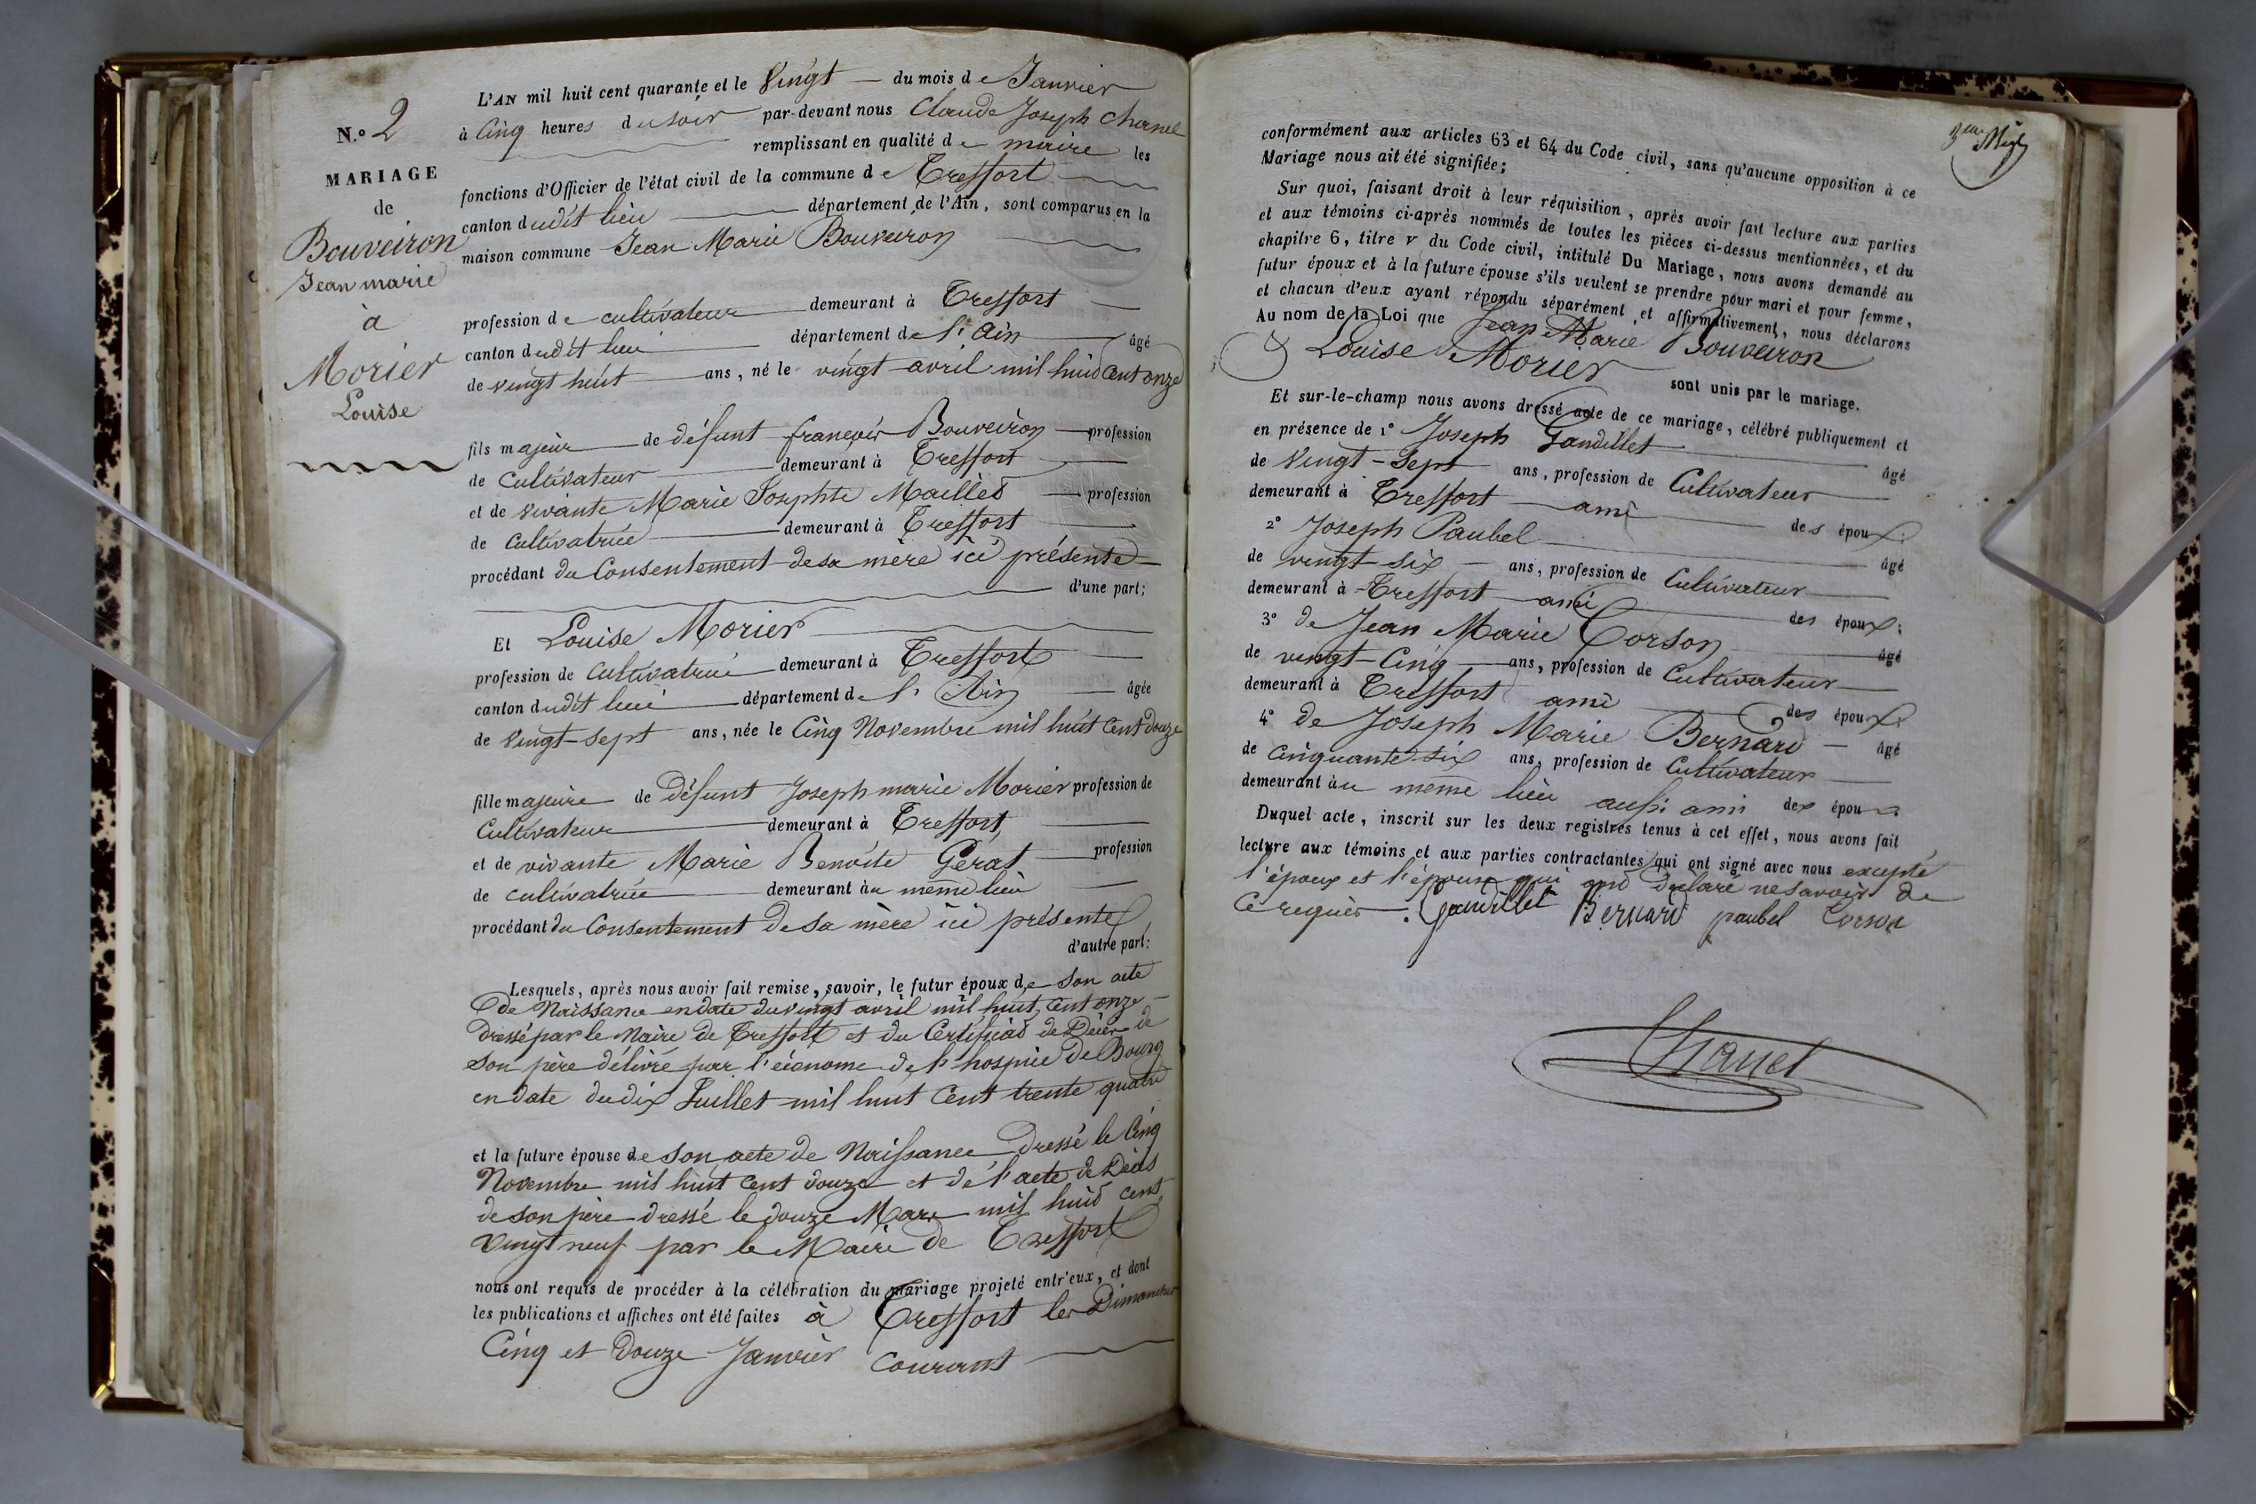 N.o 2
MARIAGE
de
Bouveiron
Jean marie
à
Morier
Louise
L'AN mil huit cent quarante et le Vingt du mois de Janvier
à Cinq heures du soir par-devant nous Claude Joseph Chanel
remplissant en qualité de maire les
fonctions d'Officier de l'état civil de la commune de Treffort
canton dudit lieu département de l'Ain, sont comparus en la
maison commune Jean Marie Bouveiron
profession de cultivateur demeurant à Treffort
canton dudit lieu département de l'Ain âgé
de vingt huit ans, né le vingt avril mil huit cent onze
fils majeur de défunt françois Bouveiron profession
de Cultivateur demeurant à Treffort
et de vivante Marie Josephte Maillet profession
de Cultivatrice demeurant à Treffort
procédant du Consentement de sa mère ici présente
d'une part;
Et Louise Morier
profession de Cultivatrice demeurant à Treffort
canton dudit lieu département de l'Ain âgée
de Vingt-sept ans, née le Cinq Novembre mil huit Cent douze
fille majeure de Défunt Joseph marie Morier profession de
Cultivateur demeurant à Treffort
et de vivante Marie Benoite Pérat profession
de cultivatrice demeurant au même lieu
procédant du Consentement de sa mère ici présente
d'autre part:
Lesquels, après nous avoir fait remise, savoir, le futur époux de son acte
de Naissance en date du vingt avril mil huit cent onze
dressé par le Maire de Treffort et du Certificat de Décès de
son père délivré par l'économe de l'hospice de Bourg
en date du dix Juillet mil huit Cent trente quatre
et la future épouse de son acte de Naissance dressé le Cinq
Novembre mil huit cent douze et de l'acte de Décès
de son père dressé le douze Mars mil huit cent
vingt neuf par le Maire de Treffort
nous ont requis de procéder à la célébration du mariage projeté entr'eux, et dont
les publications et affiches ont été faites à Treffort les Dimanches
Cinq et Douze Janvier Courant
conformément aux articles 63 et 64 du Code civil, sans qu'aucune opposition à ce
Mariage nous ait été signifiée;
Sur quoi, faisant droit à leur réquisition, après avoir fait lecture aux parties
et aux témoins ci-après nommés de toutes les pièces ci-dessus mentionnées, et du
chapitre 6, titre v du Code civil, intitulé Du Mariage, nous avons demandé au
futur époux et à la future épouse s'ils veulent se prendre pour mari et pour femme,
et chacun d'eux ayant répondu séparément et affirmativement, nous déclarons
Au nom de la Loi que Jean Marie Bouveiron
& Louise Morier
sont unis par le mariage.
Et sur-le-champ nous avons dressé acte de ce mariage, célébré publiquement et
en présence de 1° Joseph Gandillet âgé
de Vingt-Sept ans, profession de Cultivateur
demeurant à Treffort ami des époux.
2° Joseph Paubel âgé
de vingt-six ans, profession de Cultivateur
demeurant à Treffort ami des époux;
3° de Jean Marie Corson âgé
de vingt-Cinq ans, profession de Cultivateur
demeurant à Treffort ami des époux
4° de Joseph Marie Bernard âgé
de cinquante-six ans, profession de Cultivateur
demeurant au même lieu aussi ami des époux
Duquel acte, inscrit sur les deux registres tenus à cet effet, nous avons fait
lecture aux témoins et aux parties contractantes qui ont signé avec nous excepté
l'époux et l'épouse qui ont déclaré ne savoir de
Ce requis. Gandillet Bernard paubel Corson
Chanel